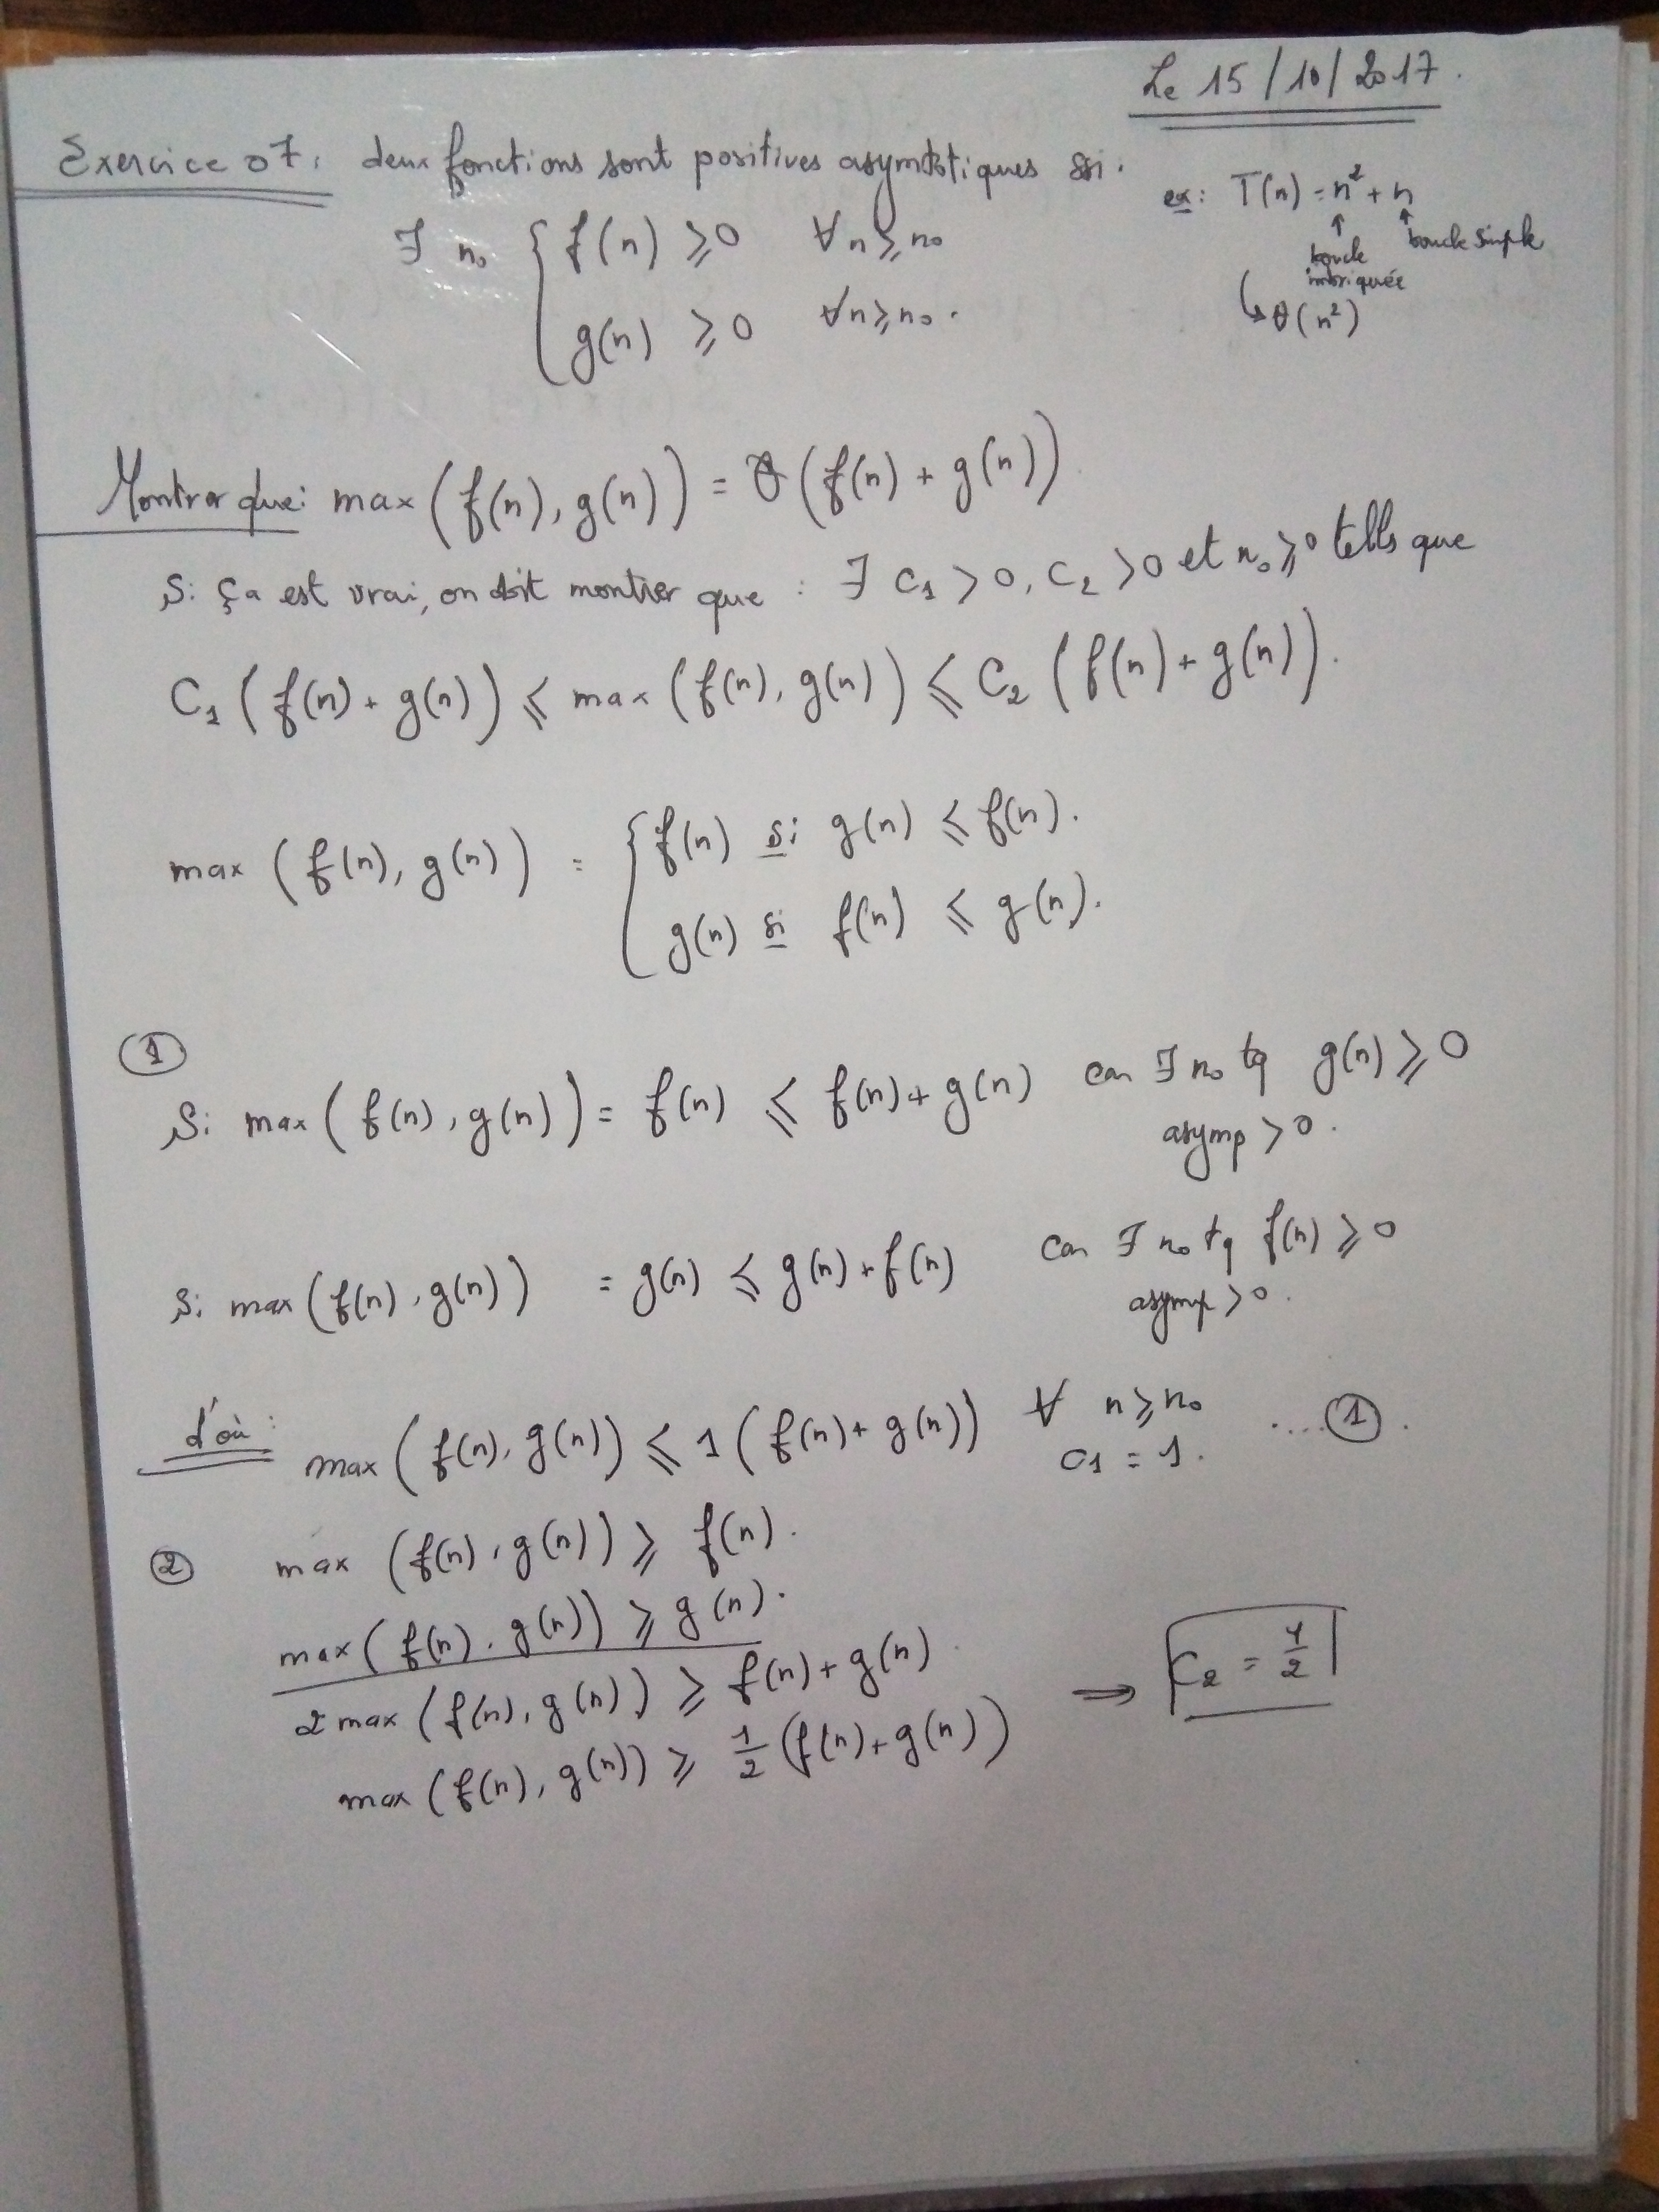 Le 15/10/2017.
Exercice 07: deux fonctions sont positives asymtotiques ssi:
∃ n₀ { f(n) ≥ 0 ∀n ≥ n₀
g(n) ≥ 0 ∀n ≥ n₀.
ex: T(n) = n² + n
↑ boucle imbriquée
↑ boucle simple
↳ θ(n²)
Montrer que: max(f(n), g(n)) = θ(f(n) + g(n))
Si ça est vrai, on doit montrer que : ∃ C₁ > 0, C₂ > 0 et n₀ ≥ 0 tells que
C₁(f(n) + g(n)) ≤ max(f(n), g(n)) ≤ C₂(f(n) + g(n)).
max(f(n), g(n)) = { f(n) si g(n) ≤ f(n).
g(n) si f(n) ≤ g(n).
①
Si max(f(n), g(n)) = f(n) ≤ f(n) + g(n) car ∃ n₀ tq g(n) ≥ 0
asymp > 0.
Si max(f(n), g(n)) = g(n) ≤ g(n) + f(n) car ∃ n₀ tq f(n) ≥ 0
asymp > 0.
d'où: max(f(n), g(n)) ≤ 1(f(n) + g(n)) ∀ n ≥ n₀ .... ①.
C1 = 1.
② max(f(n), g(n)) ≥ f(n).
max(f(n), g(n)) ≥ g(n).
2 max(f(n), g(n)) ≥ f(n) + g(n).
max(f(n), g(n)) ≥ 1/2 (f(n) + g(n))
⇒ C₂ = 1/2